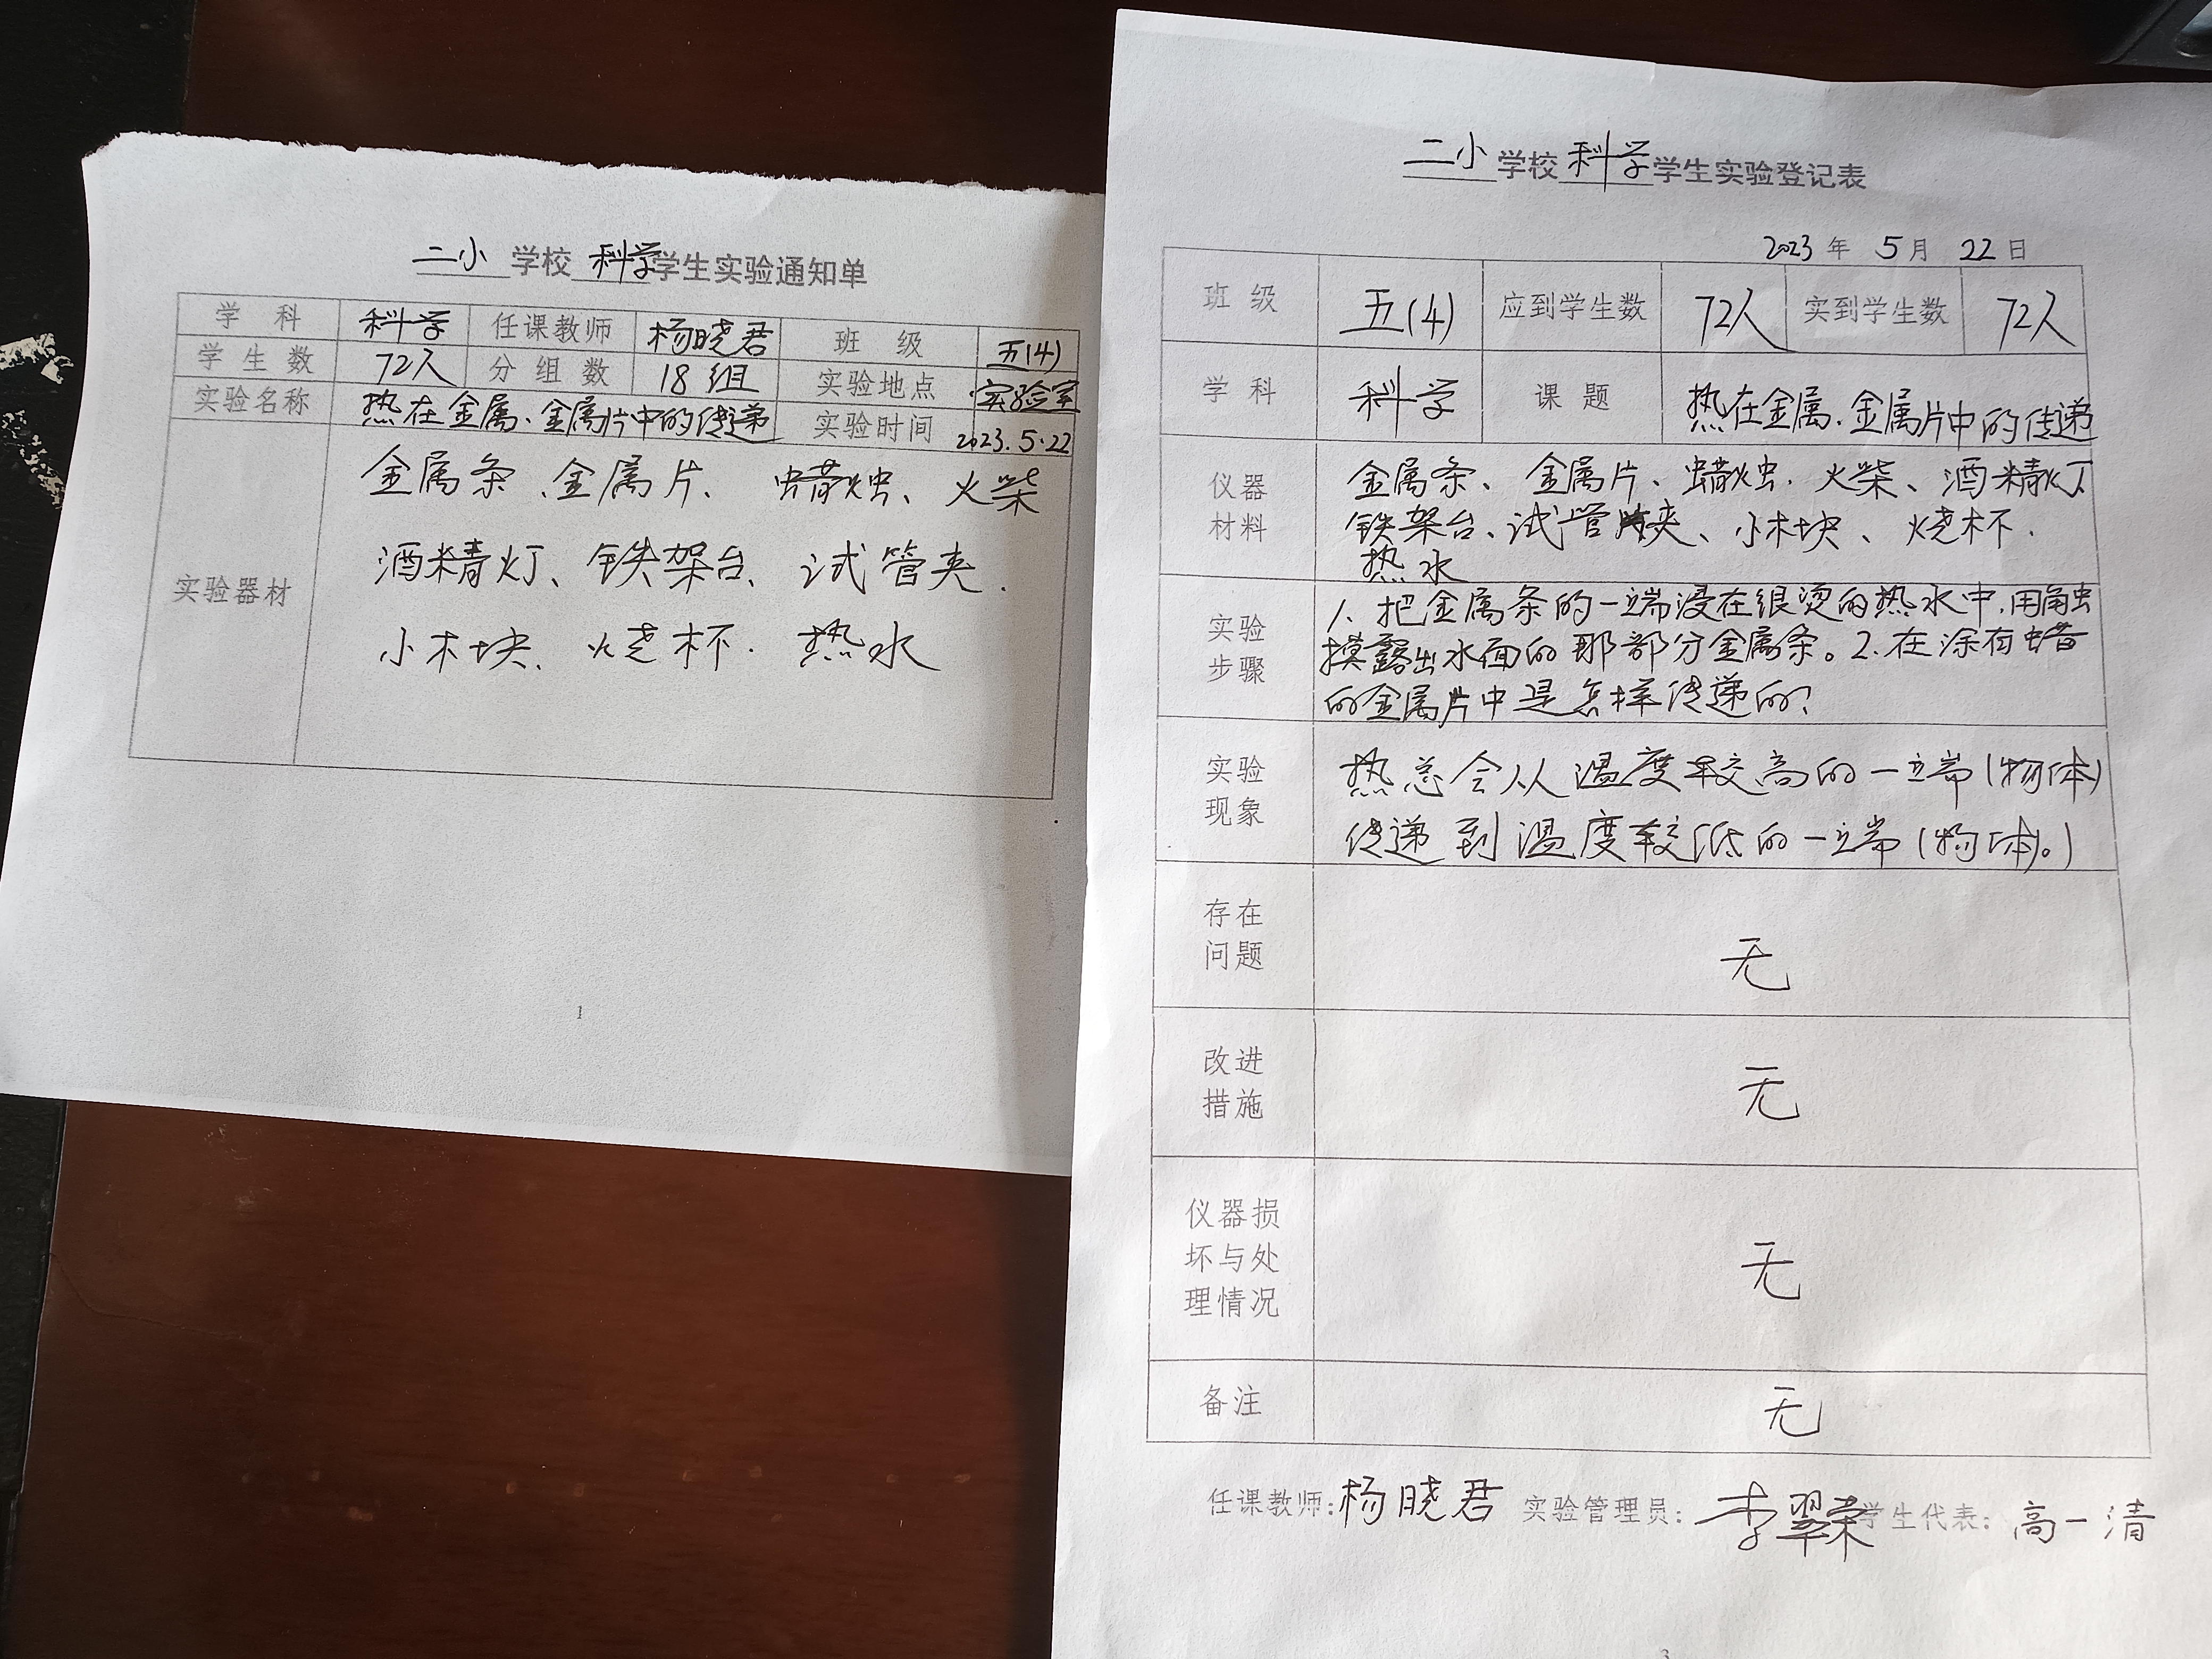 二小 学校 科学 学生实验通知单
学 科 科学 任课教师 杨晓君 班 级 五(4)
学 生 数 72人 分 组 数 18组 实验地点 实验室
实验名称 热在金属、金属片中的传递 实验时间 2023.5.22
实验器材
金属条、金属片、蜡烛、火柴
酒精灯、铁架台、试管夹、
小木块、烧杯、热水
1
二小 学校 科学 学生实验登记表
2023 年 5 月 22 日
班 级 五(4) 应到学生数 72人 实到学生数 72人
学 科 科学 课 题 热在金属、金属片中的传递
仪器
材料
金属条、金属片、蜡烛、火柴、酒精灯
铁架台、试管夹、小木块、烧杯、
热水
实验
步骤
1、把金属条的一端浸在很烫的热水中,用触
摸露出水面的那部分金属条。2、在涂有蜡
的金属片中是怎样传递的?
实验
现象
热总会从温度较高的一端(物体)
传递到温度较低的一端(物体。)
存在
问题
无
改进
措施
无
仪器损
坏与处
理情况
无
备注 无
任课教师:杨晓君 实验管理员:李翠荣 学生代表:高一清
3